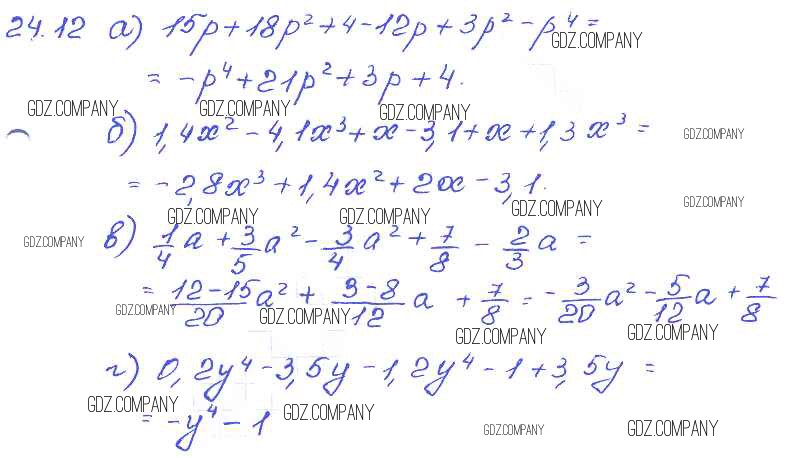 24.12 а) 15p + 18p² + 4 - 12p + 3p² - p⁴ =
GDZ.COMPANY
= -p⁴ + 21p² + 3p + 4.
GDZ.COMPANY GDZ.COMPANY GDZ.COMPANY
б) 1,4x² - 4,1x³ + x - 3,1 + x + 1,3x³ =
GDZ.COMPANY
= -2,8x³ + 1,4x² + 2x - 3,1.
GDZ.COMPANY
GDZ.COMPANY GDZ.COMPANY GDZ.COMPANY
в) 1/4 a + 3/5 a² - 3/4 a² + 7/8 - 2/3 a =
GDZ.COMPANY
= (12-15)/20 a² + (3-8)/12 a + 7/8 = -3/20 a² - 5/12 a + 7/8
GDZ.COMPANY GDZ.COMPANY GDZ.COMPANY GDZ.COMPANY
г) 0,2y⁴ - 3,5y - 1,2y⁴ - 1 + 3,5y =
GDZ.COMPANY GDZ.COMPANY
= -y⁴ - 1
GDZ.COMPANY GDZ.COMPANY